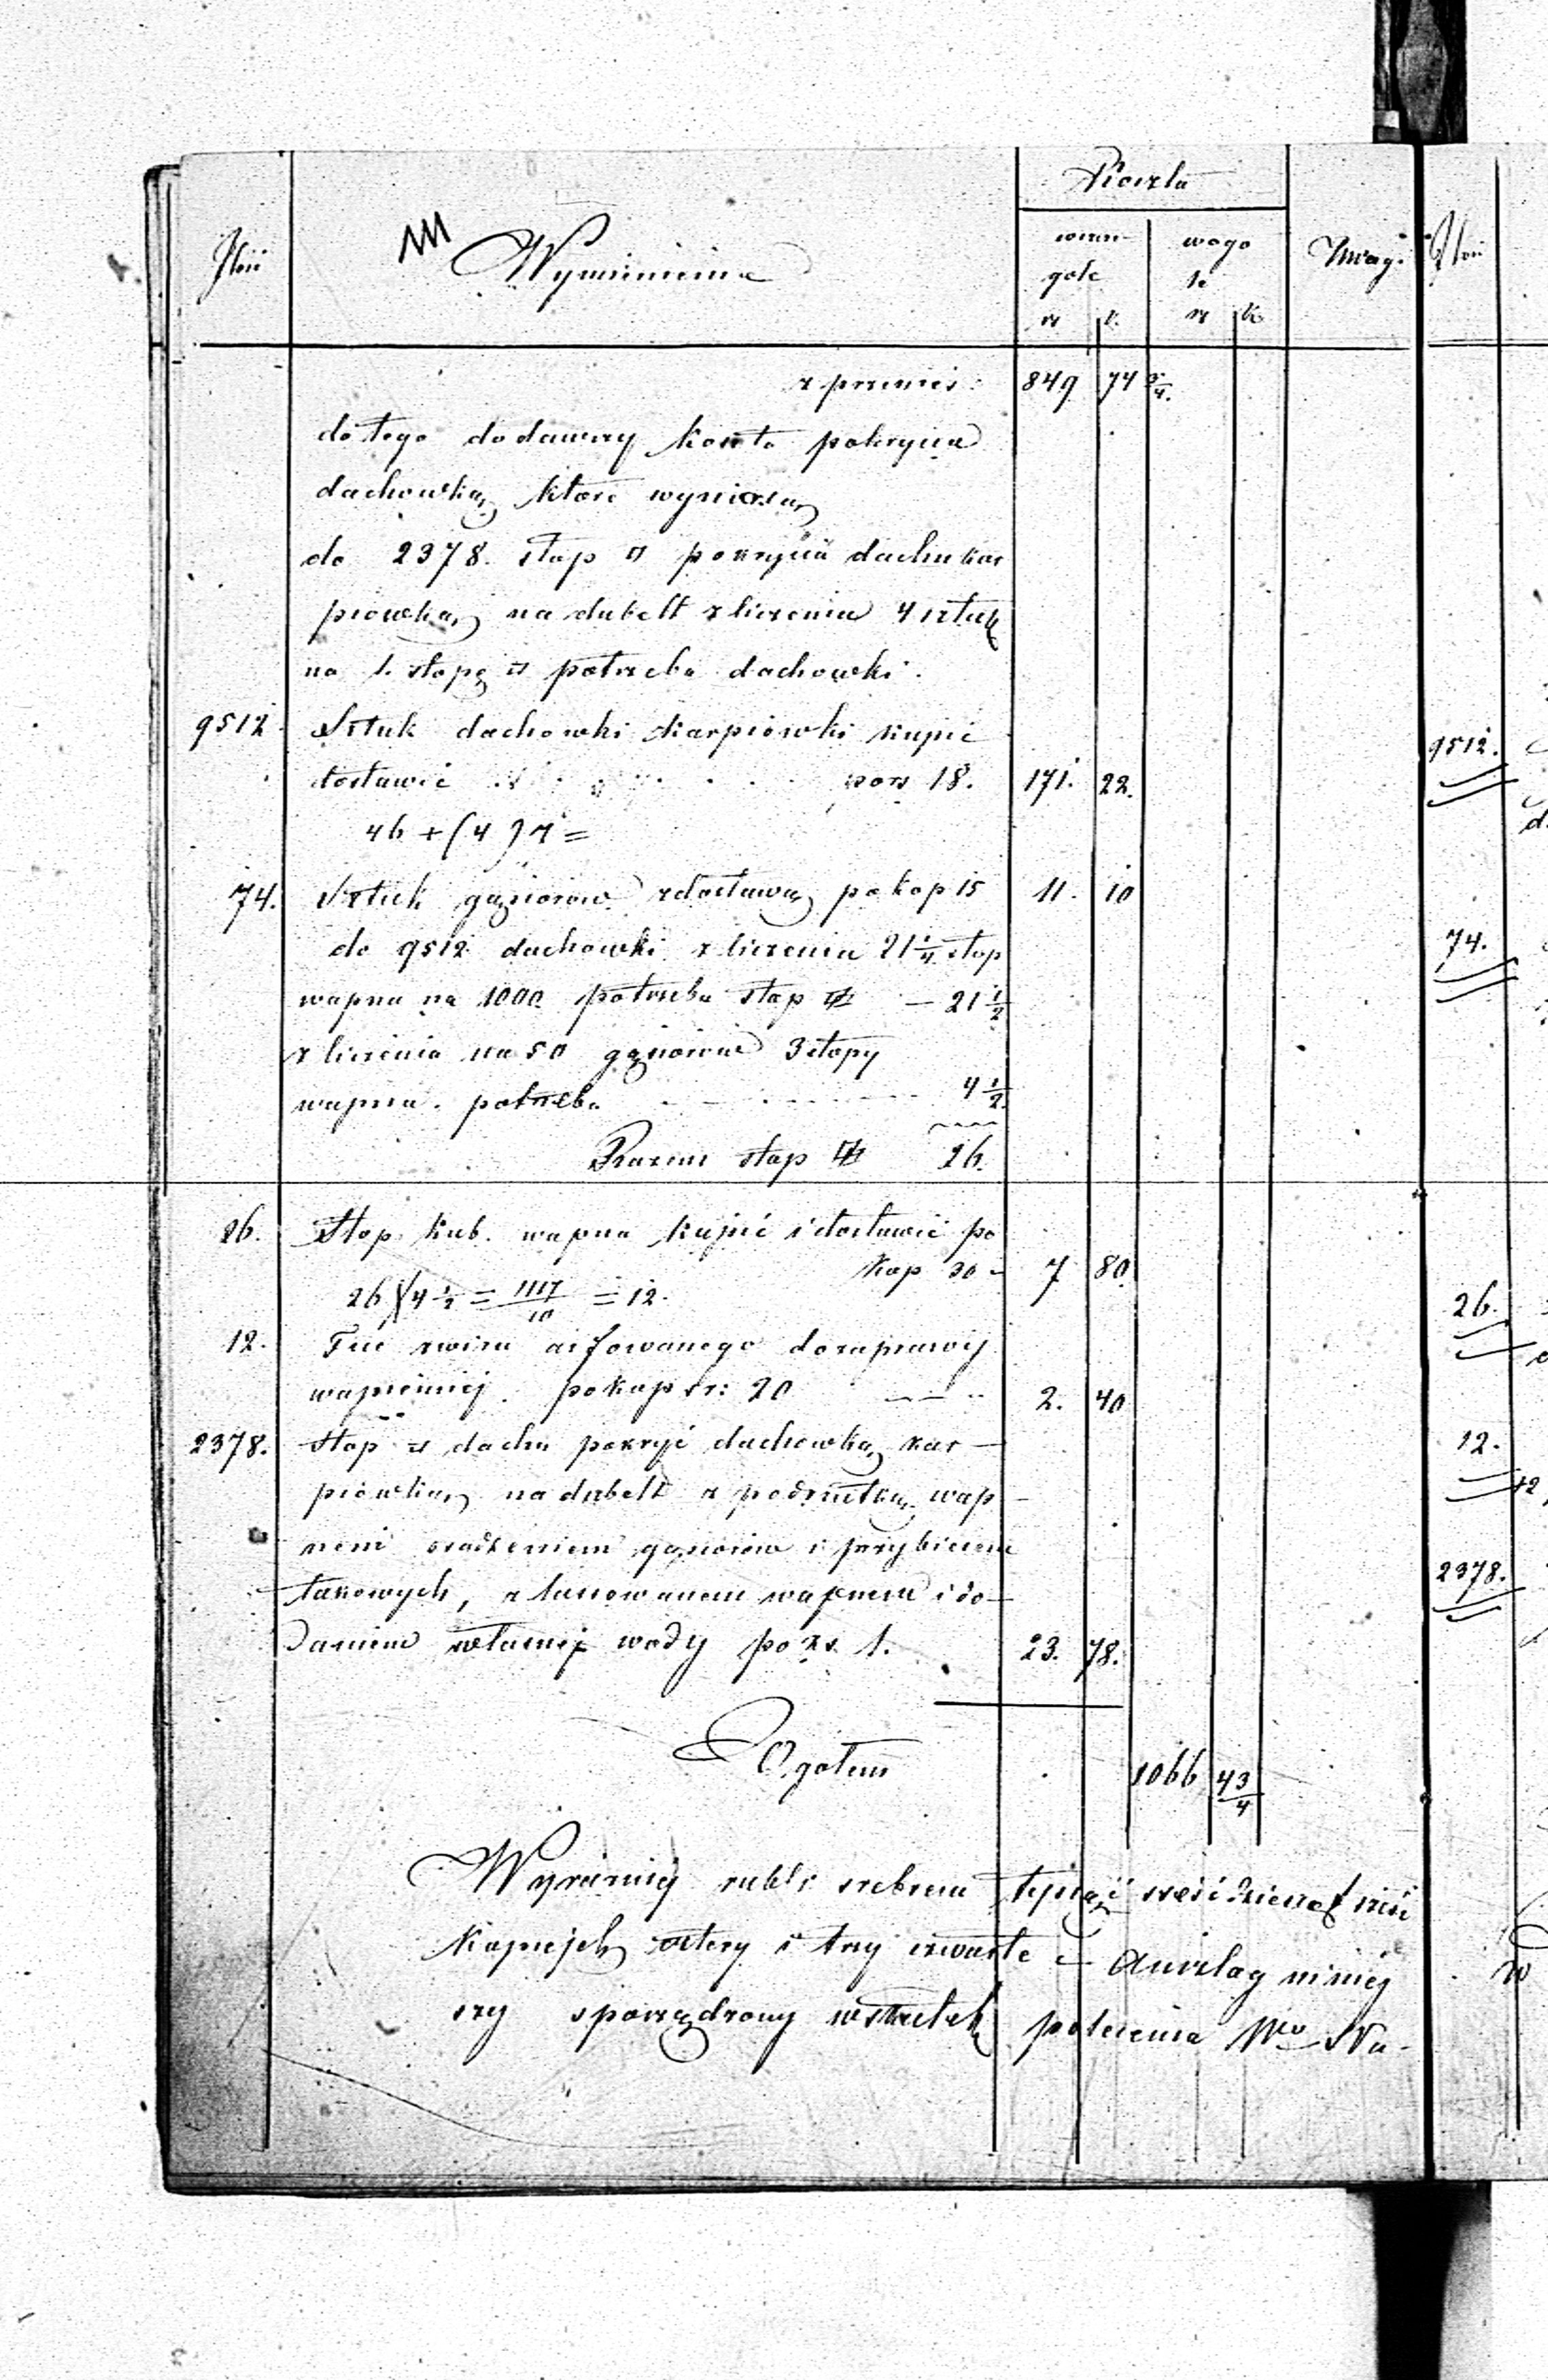 Koszta
Ilość Wymienienie
szcze- wogo Uwagi Ilość
gole le
rs k. rs k.
z przenies: 849 74 3/4.
do tego dodawszy koszta pokrycia
dachowką, które wyniosą
do 2378. stop □ pokrycia dachu kar
piowką na dubelt z liczenia 4 sztuk
na 1. stopę □ potrzeba dachowki.
9512. Sztuk dachowki karpiowki kupić
dostawić po rs 18. 171. 22. 9512.
46 + (4 ) 7 =
74. Sztuk gąsiorow z dostawą po kop 15 11. 10
do 9512 dachowki z liczenia 21 1/4 stop 74.
wapna na 1000 potrzeba stop — 21 1/2
z liczenia na 50 gąsiorow 3 stopy
wapna. potrzeba 4 1/2.
Razem stop 26.
26. Stop kub. wapna kupić i dostawić po
kop 30 - 7 80.
26 X 4 1/2 = 1117/10 = 12. 26.
12. Fur żwiru arfowanego do zaprawy
wapiennej po kop sr: 20 2. 40
2378. Stop □ dachu pokryć dachowką kar- 12.
piowką na dubelt z podrzutką wap-
nem osadzeniem gąsiorow i przybiciem
łatowych, z lasowanem wapnem i do- 2378.
daniem własnej wody po rs. 1. 23. 78.
Ogołem 1066 4 3/4
Wyraźniej rubli srebrem tysiąc sześćdziesiąt sześć
kopiejek cztery i trzy czwarte — Anszlag niniej
szy sporządzony wskutek polecenia Wgo Na-